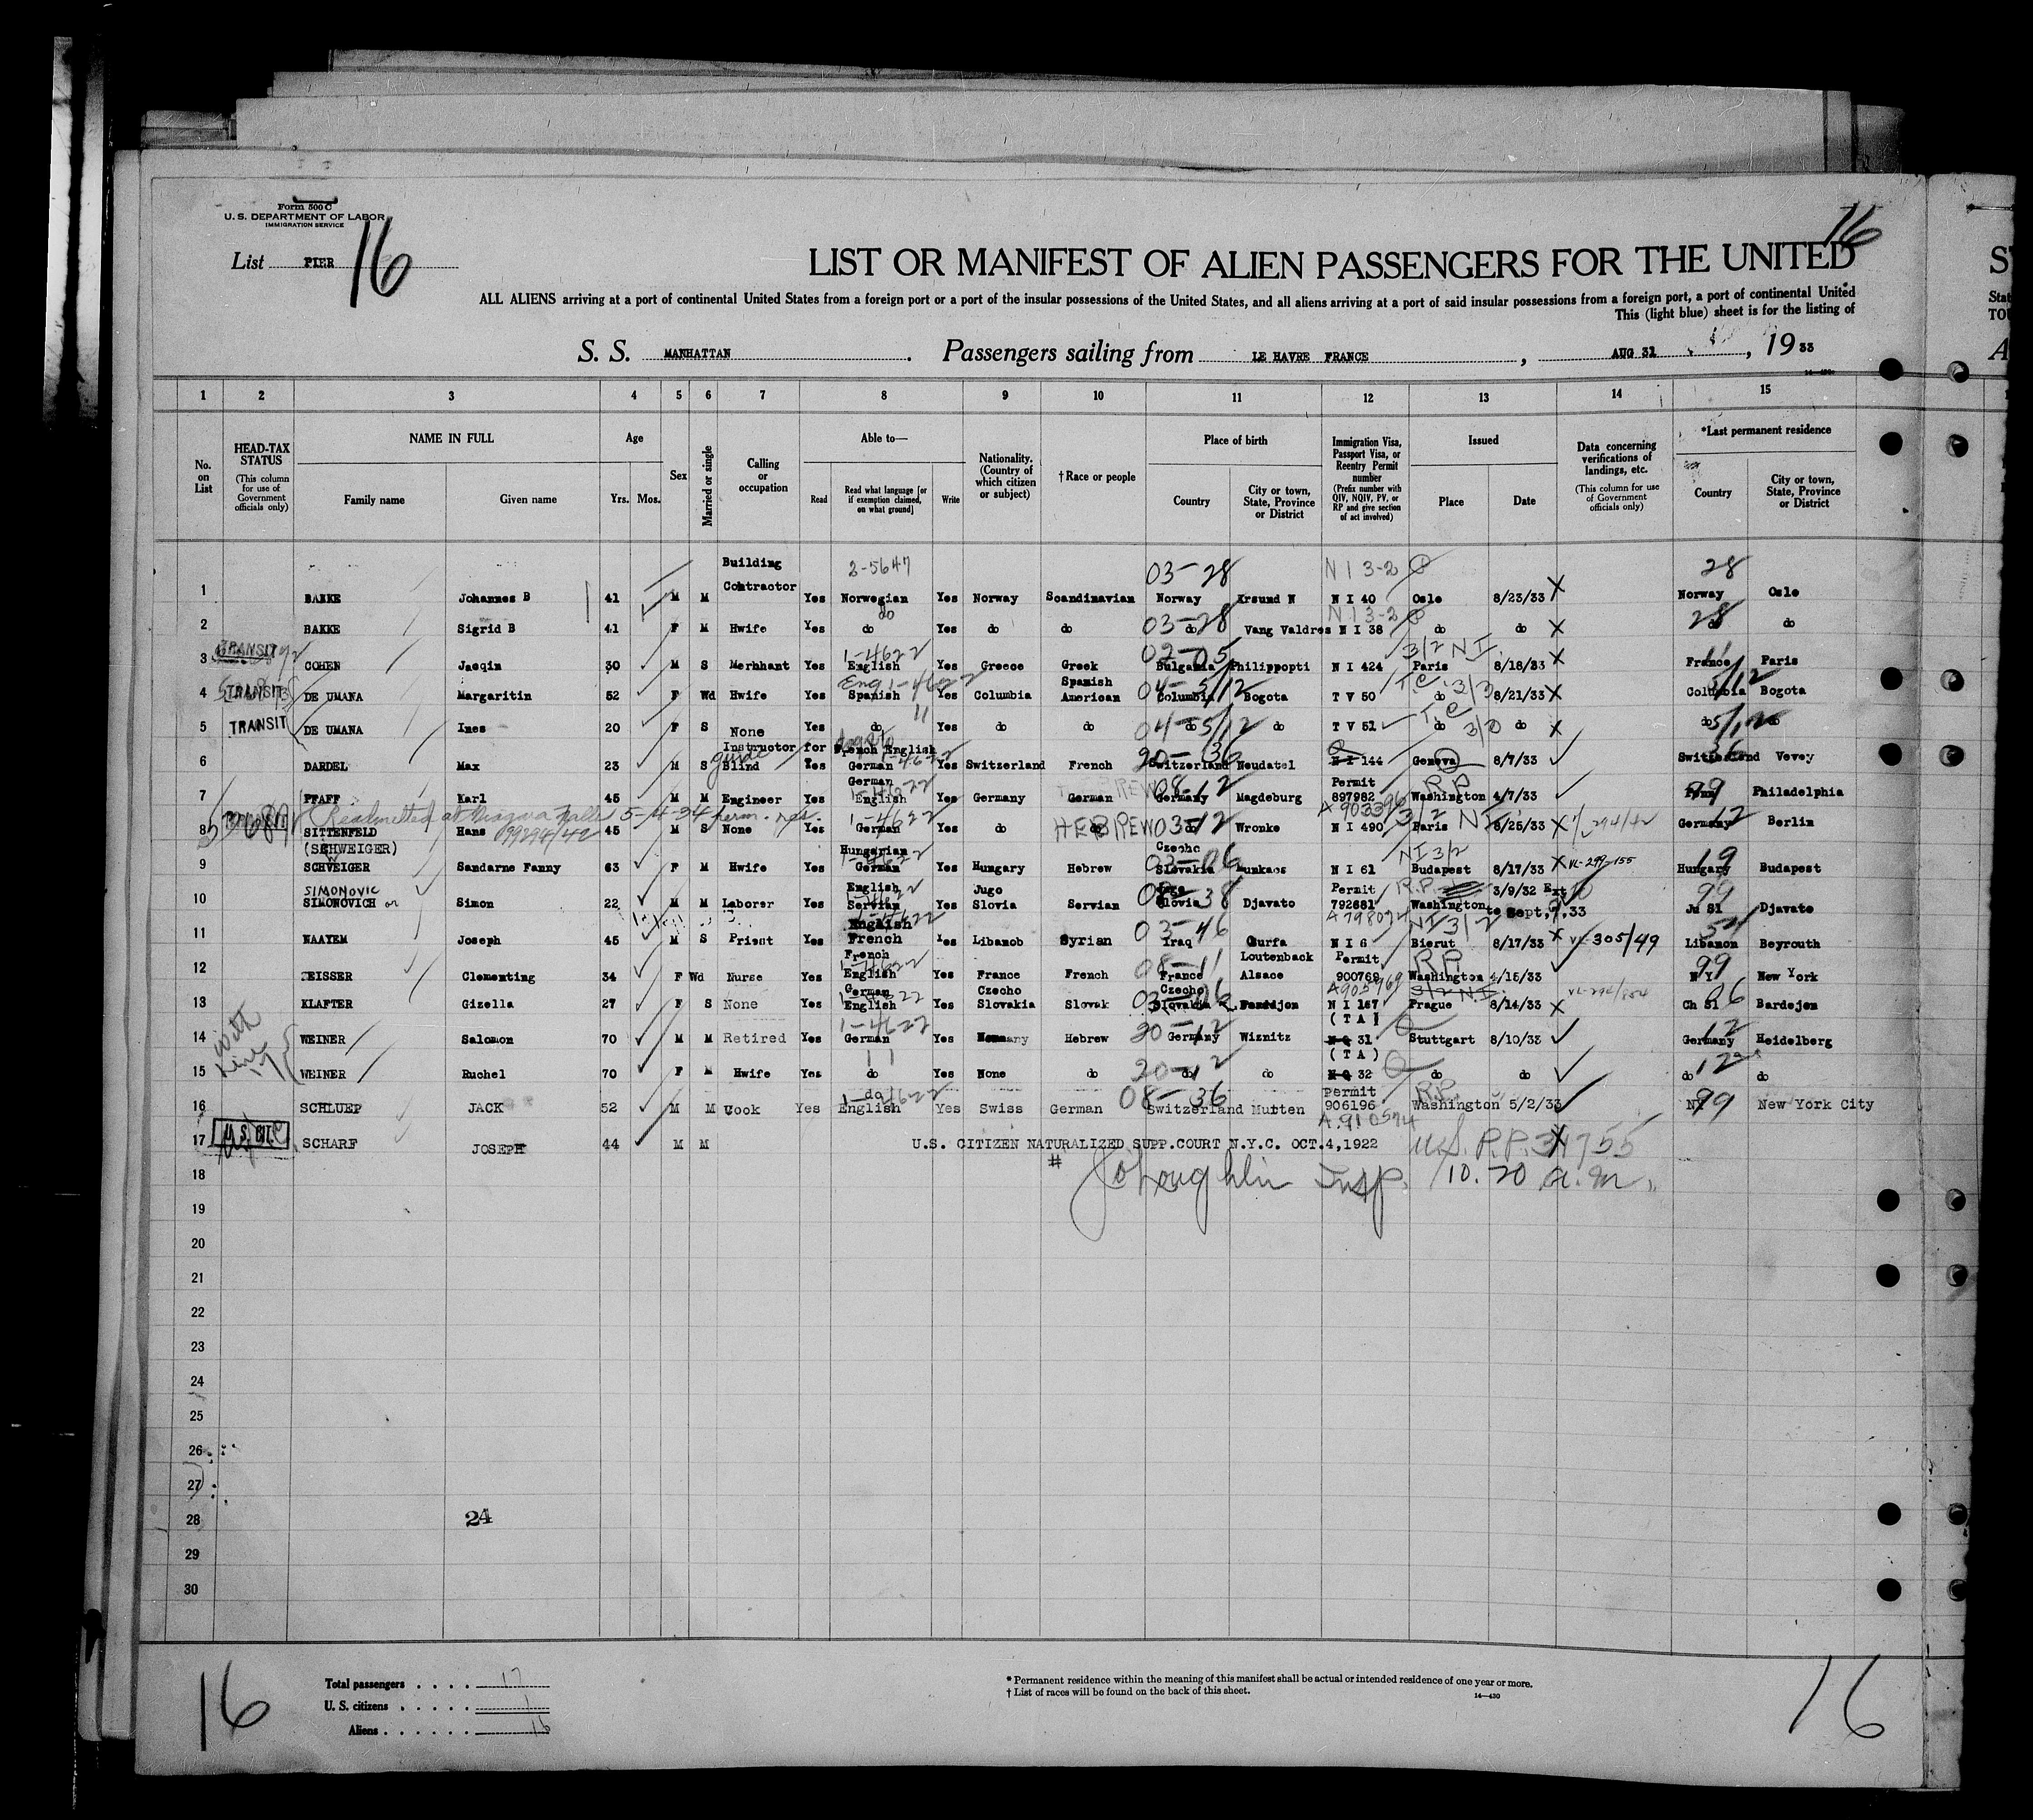 16
Form 500 C
U. S. DEPARTMENT OF LABOR
IMMIGRATION SERVICE
List PIER 16
LIST OR MANIFEST OF ALIEN PASSENGERS FOR THE UNITED
ALL ALIENS arriving at a port of continental United States from a foreign port or a port of the insular possessions of the United States, and all aliens arriving at a port of said insular possessions from a foreign port, a port of continental United
This (light blue) sheet is for the listing of
S. S. MANHATTAN . Passengers sailing from LE HAVRE FRANCE , AUG 31 , 19 33
1 2 3 4 5 6 7 8 9 10 11 12 13 14 15
No. on List
HEAD-TAX STATUS
(This column for use of Government officials only)
NAME IN FULL
Family name
Given name
Age
Yrs. Mos.
Sex
Married or single
Calling or occupation
Able to—
Read
Read what language [or if exemption claimed, on what ground]
Write
Nationality. (Country of which citizen or subject)
†Race or people
Place of birth
Country
City or town, State, Province or District
Immigration Visa, Passport Visa, or Reentry Permit number
(Prefix number with QIV, NQIV, PV, or RP and give section of act involved)
Issued
Place
Date
Data concerning verifications of landings, etc.
(This column for use of Government officials only)
*Last permanent residence
Country
City or town, State, Province or District
Building 2-5647 03-28 N I 3-2 28
1 BAKKE Johannes B 41 M M Contractor Yes Norwegian Yes Norway Scandinavian Norway Krsund N N I 40 Oslo 8/23/33 X Norway Oslo
do 03-28 N I 3-2 28
2 BAKKE Sigrid B 41 F M Hwife Yes do Yes do do do Vang Valdres N I 38 do do X do
TRANSIT 1-4622 02-05 3/2 N I.
3 COHEN Jaeqim 30 M S Merhhant Yes English Yes Greece Greek Bulgaria Philippopti N I 424 Paris 8/18/33 X France Paris
TRANSIT Eng 1-4622 Spanish 04-5/12 T.C. 3/3 5/12
4 DE UMANA Margaritin 52 F Wd Hwife Yes Spanish Yes Columbia American Columbia Bogota T V 50 do 8/21/33 X Columbia Bogota
TRANSIT 11 04-5/12 T C 3/3 5/12
5 DE UMANA Ines 20 F S None Yes do Yes do do do do T V 51 do do X do do
Instructor for French English guide 1-4622 20-36 36
6 DARDEL Max 23 M S Blind Yes German Yes Switzerland French Switzerland Neudatel N I 144 Geneva 8/7/33 Switzerland Vevey
German 1-4622 HEBREW 08-12 Permit R P 99
7 PFAFF Karl 45 M M Engineer Yes English Yes Germany German Germany Magdeburg 897982 Washington 4/7/33 Penn Philadelphia
Readmitted at Niagara Falls 5-4-34 perm. res. 99294/42 1-4622 HEBREW 03-12 A 903396 3/2 N I 12
8 SITTENFELD Hans 45 M S None Yes German Yes do do do Wronke N I 490 Paris 8/25/33 X 294/42 Germany Berlin
(SCHWEIGER) Hungarian 1-4622 Czecho 03-06 N I 3/2 19
9 SCHVEIGER Sandarne Fanny 63 F M Hwife Yes German Yes Hungary Hebrew Slovakia Munkacs N I 61 Budapest 8/17/33 X VL-299-155 Hungary Budapest
SIMONOVIC English Jugo 08-38 Permit R.P. 3/9/32 Ext 99
10 SIMONOVICH or Simon 22 M M Laborer Yes Servian Yes Slovia Servian Slovia Djavato 792681 Washington to Sept,7,33 Ju Sl Djavato
English 1-4622 03-46 A 798092 N I 3/2
11 NAAYEM Joseph 45 M S Priest Yes French Yes Libanob Syrian Iraq Ourfa N I 6 Bierut 8/17/33 X VL-305/49 Libanon Beyrouth
French 1-4622 08-11 Loutenback Permit R P 99
12 Clementing 34 F Wd Nurse Yes English Yes France French France Alsace 900769 Washington 4/15/33 N Y New York
German 1-4622 Czecho Czecho 03-06 A 905969 3/2 N I. VL-294/804 06
13 KLAFTER Gizella 27 F S None Yes English Yes Slovakia Slovak Slovakia N I 157 Prague 8/14/33 X Ch Sl Bardejon
With line 17 1-4622 30-12 ( T A ) 12
14 WEINER Salomon 70 M M Retired Yes German Yes Germany Hebrew Germany Wiznitz N Q 31 Stuttgart 8/10/33 Germany Heidelberg
11 20-12 ( T A ) Q 12
15 WEINER Ruchel 70 F M Hwife Yes do Yes None do do do N Q 32 do do do do
do 1-4622 08-36 Permit R.P. 99
16 SCHLUEP JACK 52 M M Cook Yes English Yes Swiss German Switzerland Mutten 906196 Washington 5/2/33 N Y New York City
A.910574
U.S. CIT.
17 SCHARF JOSEPH 44 M M U.S. CITIZEN NATURALIZED SUPP.COURT N.Y.C. OCT.4,1922 U.S. P.P. 34755
18 # J O'Loughlin Insp. 10.20 a.m.
19
20
21
22
23
24
25
26
27
28 24
29
30
16
Total passengers . . . . 17
U. S. citizens . . . . . 1
Aliens . . . . . . 16
* Permanent residence within the meaning of this manifest shall be actual or intended residence of one year or more.
† List of races will be found on the back of this sheet.
14—430
16